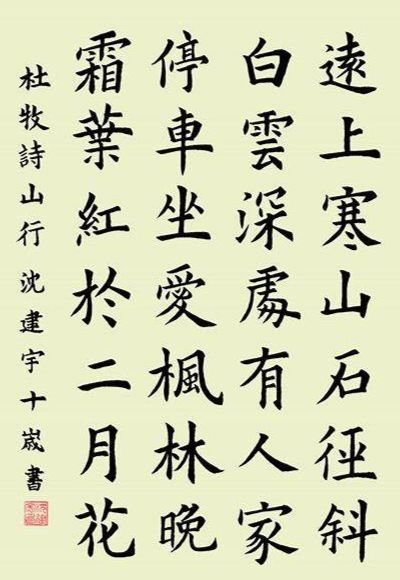 遠上寒山石徑斜
白雲深處有人家
停車坐愛楓林晚
霜葉紅於二月花
杜牧詩山行沈建宇十歲書